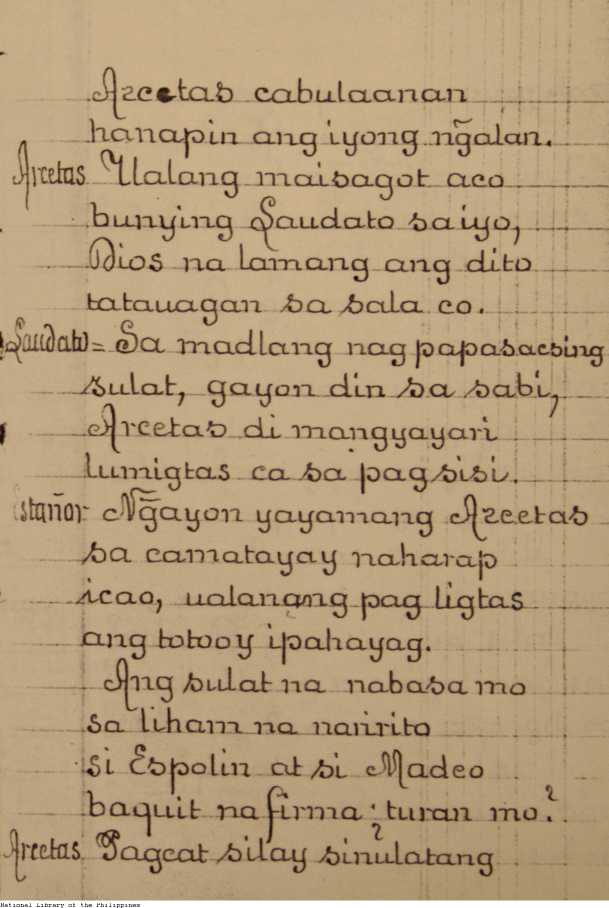 Arcetas cabulaanan
hanapin ang iyong ng̃alan.
Arcetas Ualang maisagot aco
bunying Laudato sa iyo,
Dios na lamang ang dito
tatauagan sa sala co.
Laudato = Sa madlang nag papasacsing
sulat, gayon din sa sabi,
Arcetas di mangyayari
lumigtas ca sa pag sisi.
stañor Ng̃ayon yayamang Arcetas
sa camatayay naharap
icao, ualanang pag ligtas
ang totooy ipahayag.
Ang sulat na nabasa mo
sa liham na naririto
si Espolin at si Madeo
baquit na firma turan mo?
Arcetas Pagcat silay sinulatang
National Library of the Philippines